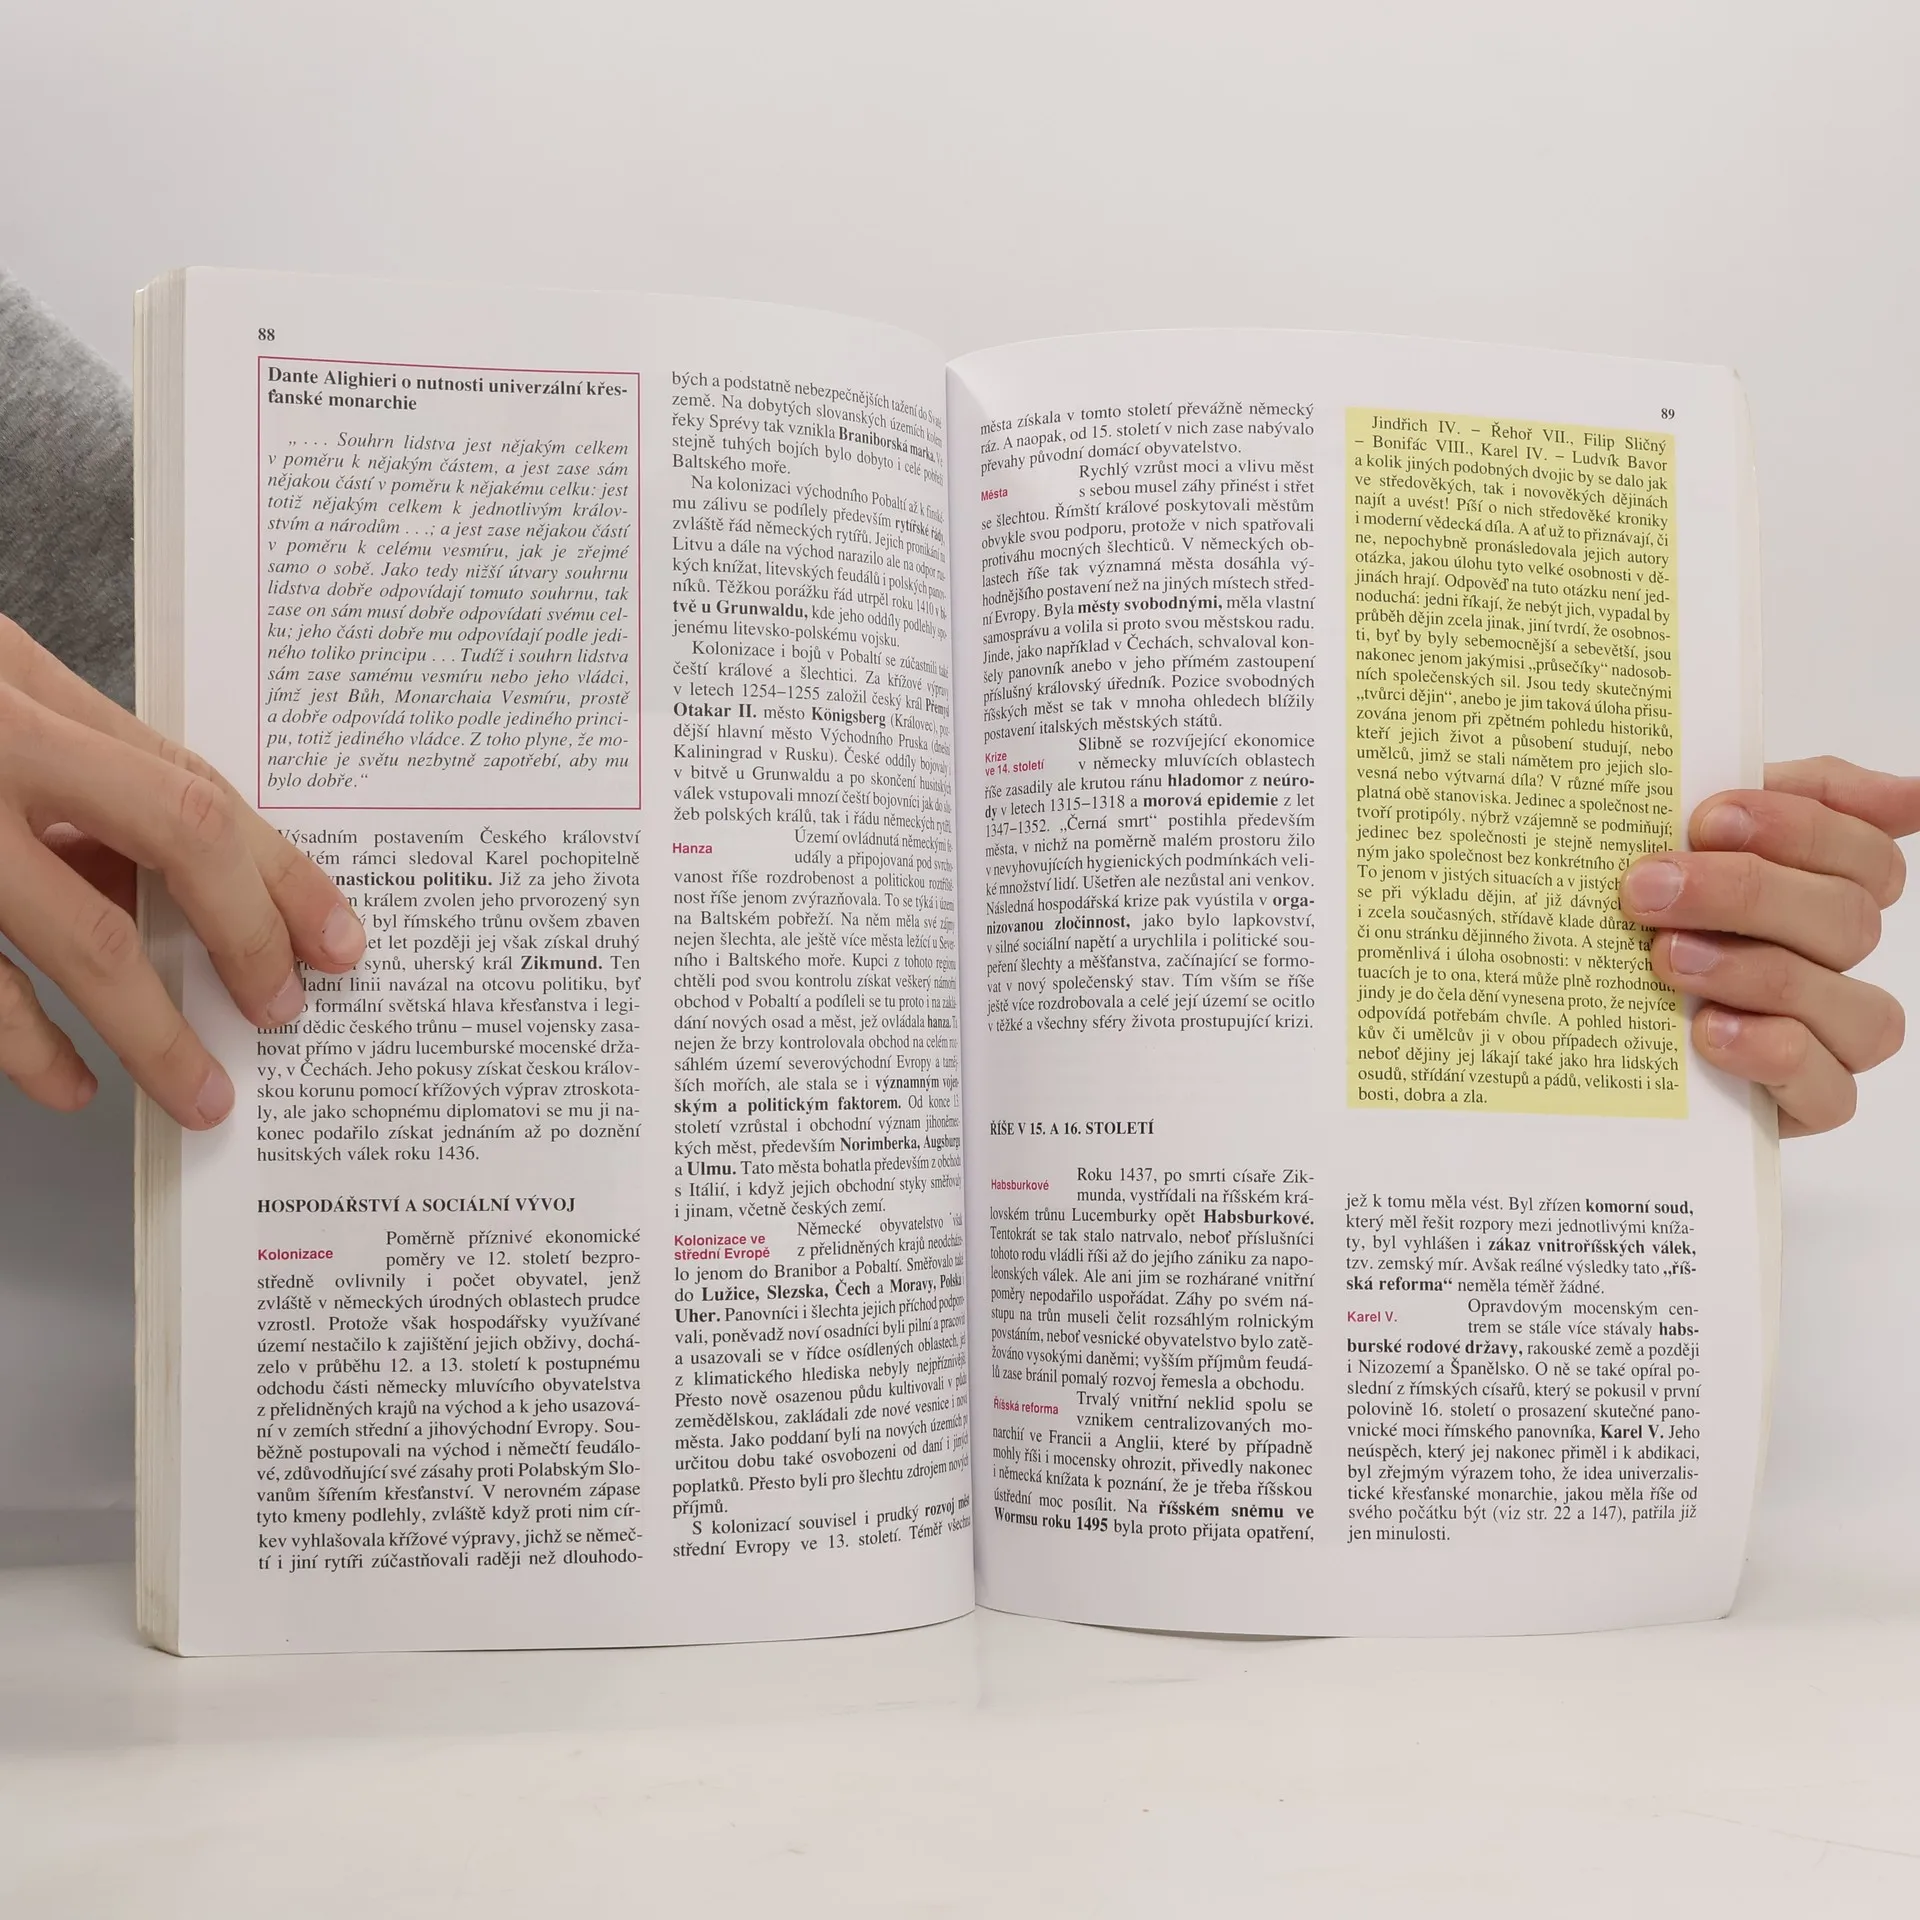 88
Dante Alighieri o nutnosti univerzální křes-
ťanské monarchie
„ . . . Souhrn lidstva jest nějakým celkem
v poměru k nějakým částem, a jest zase sám
nějakou částí v poměru k nějakému celku: jest
totiž nějakým celkem k jednotlivým králov-
stvím a národům . . .; a jest zase nějakou částí
v poměru k celému vesmíru, jak je zřejmé
samo o sobě. Jako tedy nižší útvary souhrnu
lidstva dobře odpovídají tomuto souhrnu, tak
zase on sám musí dobře odpovídati svému cel-
ku; jeho části dobře mu odpovídají podle jedi-
ného toliko principu . . . Tudíž i souhrn lidstva
sám zase samému vesmíru nebo jeho vládci,
jímž jest Bůh, Monarchaia Vesmíru, prostě
a dobře odpovídá toliko podle jediného princi-
pu, totiž jediného vládce. Z toho plyne, že mo-
narchie je světu nezbytně zapotřebí, aby mu
bylo dobře.“
Výsadním postavením Českého království
rámci sledoval Karel pochopitelně
politiku. Již za jeho života
králem zvolen jeho prvorozený syn
byl římského trůnu ovšem zbaven
let později jej však získal druhý
synů, uherský král Zikmund. Ten
linii navázal na otcovu politiku, byť
formální světská hlava křesťanstva i legi-
dědic českého trůnu – musel vojensky zasa-
hovat přímo v jádru lucemburské mocenské drža-
vy, v Čechách. Jeho pokusy získat českou králov-
skou korunu pomocí křížových výprav ztroskota-
ly, ale jako schopnému diplomatovi se mu ji na-
konec podařilo získat jednáním až po doznění
husitských válek roku 1436.
HOSPODÁŘSTVÍ A SOCIÁLNÍ VÝVOJ
Kolonizace
Poměrně příznivé ekonomické
poměry ve 12. století bezpro-
středně ovlivnily i počet obyvatel, jenž
zvláště v německých úrodných oblastech prudce
vzrostl. Protože však hospodářsky využívané
území nestačilo k zajištění jejich obživy, docháze-
zelo v průběhu 12. a 13. století k postupnému
odchodu části německy mluvícího obyvatelstva
z přelidněných krajů na východ a k jeho usazová-
ní v zemích střední a jihovýchodní Evropy. Sou-
běžně postupovali na východ i němečtí feudálo-
vé, zdůvodňující své zásahy proti Polabským Slo-
vanům šířením křesťanství. V nerovném zápase
tyto kmeny podlehly, zvláště když proti nim cír-
kev vyhlašovala křížové výpravy, jichž se němeč-
tí i jiní rytíři zúčastňovali raději než dlouhodo-
bých a podstatně nebezpečnějších tažení do Svaté
země. Na dobytých slovanských územích kolem
řeky Sprévy tak vznikla Braniborská marka. Ve
stejně tuhých bojích bylo dobyto i celé pobřeží
Baltského moře.
Na kolonizaci východního Pobaltí až k finské-
mu zálivu se podílely především rytířské řády,
zvláště řád německých rytířů. Jejich pronikání na
Litvu a dále na východ narazilo ale na odpor rus-
kých knížat, litevských feudálů i polských panov-
níků. Těžkou porážku řád utrpěl roku 1410 v bi-
tvě u Grunwaldu, kde jeho oddíly podlehly spo-
jenému litevsko-polskému vojsku.
Kolonizace i bojů v Pobaltí se zúčastnili také
čeští králové a šlechtici. Za křížové výpravy
v letech 1254–1255 založil český král Přemysl
Otakar II. město Königsberg (Královec), poz-
dější hlavní město Východního Pruska (dnešní
Kaliningrad v Rusku). České oddíly bojovaly i
v bitvě u Grunwaldu a po skončení husitských
válek vstupovali mnozí čeští bojovníci jak do slu-
žeb polských králů, tak i řádu německých rytířů.
Hanza
Území ovládnutá německými fe-
udály a připojovaná pod svrcho-
vanost říše rozdrobenost a politickou roztříště-
nost říše jenom zvýrazňovala. To se týká i území
na Baltském pobřeží. Na něm měla své zájmy
nejen šlechta, ale ještě více města ležící u Sever-
ního i Baltského moře. Kupci z tohoto regionu
chtěli pod svou kontrolu získat veškerý námořní
obchod v Pobaltí a podíleli se tu proto i na zaklá-
dání nových osad a měst, jež ovládala hanza. Ta
nejen že brzy kontrolovala obchod na celém roz-
sáhlém území severovýchodní Evropy a taměj-
ších mořích, ale stala se i významným vojen-
ským a politickým faktorem. Od konce 13.
století vzrůstal i obchodní význam jihoněmec-
kých měst, především Norimberka, Augsburgu
a Ulmu. Tato města bohatla především z obchodu
s Itálií, i když jejich obchodní styky směřovaly
i jinam, včetně českých zemí.
Kolonizace ve
střední Evropě
Německé obyvatelstvo však
z přelidněných kra­jů neodcháze-
lo jenom do Branibor a Pobaltí. Směřovalo také
do Lužice, Slezska, Čech a Moravy, Polska i
Uher. Panovníci i šlechta jejich příchod podporo-
vali, poněvadž noví osadníci byli pilní a pracovití
a usazovali se v řídce osídlených oblastech, jež
z klimatického hlediska nebyly nejpříznivější.
Přesto nově osazenou půdu kultivovali v půdu
zemědělskou, zakládali zde nové vesnice i nová
města. Jako poddaní byli na nových územích po
určitou dobu také osvobozeni od daní i jiných
poplatků. Přesto byli pro šlechtu zdrojem nových
příjmů.
S kolonizací souvisel i prudký rozvoj měst
střední Evropy ve 13. století. Téměř všechna
89
města získala v tomto století převážně německý
ráz. A naopak, od 15. století v nich zase nabývalo
převahy původní domácí obyvatelstvo.
Města
Rychlý vzrůst moci a vlivu měst
s sebou musel záhy přinést i střet
se šlechtou. Římští králové poskytovali městům
obvykle svou podporu, protože v nich spatřovali
protiváhu mocných šlechticů. V německých ob-
lastech říše tak významná města dosáhla vý-
hodnějšího postavení než na jiných místech střed-
ní Evropy. Byla městy svobodnými, měla vlastní
samosprávu a volila si proto svou městskou radu.
Jinde, jako například v Čechách, schvaloval kon-
šely panovník anebo v jeho přímém zastoupení
příslušný královský úředník. Pozice svobodných
říšských měst se tak v mnoha ohledech blížily
postavení italských městských států.
Krize
ve 14. století
Slibně se rozvíjející ekonomice
v německy mluvících oblastech
říše zasadily ale krutou ránu hladomor z neúro-
dy v letech 1315–1318 a morová epidemie z let
1347–1352. „Černá smrt“ postihla především
města, v nichž na poměrně malém prostoru žilo
v nevyhovujících hygienických podmínkách veli-
ké množství lidí. Ušetřen ale nezůstal ani venkov.
Následná hospodářská krize pak vyústila v orga-
nizovanou zločinnost, jako bylo lapkovství,
v silné sociální napětí a urychlila i politické sou-
peření šlechty a měšťanstva, začínající se formo-
vat v nový společenský stav. Tím vším se říše
ještě více rozdrobovala a celé její území se ocitlo
v těžké a všechny sféry života prostupující krizi.
ŘÍŠE V 15. A 16. STOLETÍ
Habsburkové
Roku 1437, po smrti císaře Zik-
munda, vystřídali na říšském krá-
lovském trůnu Lucemburky opět Habsburkové.
Tentokrát se tak stalo natrvalo, neboť příslušníci
tohoto rodu vládli říši až do jejího zániku za napo-
leonských válek. Ale ani jim se rozhárané vnitřní
poměry nepodařilo uspořádat. Záhy po svém ná-
stupu na trůn museli čelit rozsáhlým rolnickým
povstáním, neboť vesnické obyvatelstvo bylo zatě-
žováno vysokými daněmi; vyšším příjmům feudá-
lů zase bránil pomalý rozvoj řemesla a obchodu.
Říšská reforma
Trvalý vnitřní neklid spolu se
vznikem centralizovaných mo-
narchií ve Francii a Anglii, které by případně
mohly říši i mocensky ohrozit, přivedly nakonec
i německá knížata k poznání, že je třeba říšskou
ústřední moc posílit. Na říšském sněmu ve
Wormsu roku 1495 byla proto přijata opatření,
Jindřich IV. – Řehoř VII., Filip Sličný
– Bonifác VIII., Karel IV. – Ludvík Bavor
a kolik jiných podobných dvojic by se dalo jak
ve středověkých, tak i novověkých dějinách
najít a uvést! Píší o nich středověké kroniky
i moderní vědecká díla. A ať už to přiznávají, či
ne, nepochybně pronásledovala jejich autory
otázka, jakou úlohu tyto velké osobnosti v dě-
jinách hrají. Odpověď na tuto otázku není jed-
noduchá: jedni říkají, že nebýt jich, vypadal by
průběh dějin zcela jinak, jiní tvrdí, že osobnos-
ti, byť by byly sebemocnější a sebevětší, jsou
nakonec jenom jakýmisi „průsečíky“ nadosob-
ních společenských sil. Jsou tedy skutečnými
„tvůrci dějin“, anebo je jim taková úloha přisu-
zována jenom při zpětném pohledu historiků,
kteří jejich život a působení studují, nebo
umělců, jimž se stali námětem pro jejich slo-
vesná nebo výtvarná díla? V různé míře jsou
platná obě stanoviska. Jedinec a společnost ne-
tvoří protipóly, nýbrž vzájemně se podmiňují;
jedinec bez společnosti je stejně nemyslitel-
ným jako společnost bez konkrétního
To jenom v jistých situacích a v jistých
se při výkladu dějin, ať již dávných
i zcela současných, střídavě klade důraz na
či onu stránku dějinného života. A stejně
proměnlivá i úloha osobnosti: v některých
tuacích je to ona, která může plně rozhodnout,
jindy je do čela dění vynesena proto, že nejvíce
odpovídá potřebám chvíle. A pohled histori-
kův či umělcův ji v obou případech oživuje,
neboť dějiny jej lákají také jako hra lidských
osudů, střídání vzestupů a pádů, velikosti i sla-
bosti, dobra a zla.
jež k tomu měla vést. Byl zřízen komorní soud,
který měl řešit rozpory mezi jednotlivými kníža-
ty, byl vyhlášen i zákaz vnitroříšských válek,
tzv. zemský mír. Avšak reálné výsledky tato „říš-
ská reforma“ neměla téměř žádné.
Karel V.
Opravdovým mocenským cen-
trem se stále více stávaly habs-
burské rodové državy, rakouské země a později
i Nizozemí a Španělsko. O ně se také opíral po-
slední z římských císařů, který se pokusil v první
polovině 16. století o prosazení skutečné pano-
vnické moci římského panovníka, Karel V. Jeho
neúspěch, který jej nakonec přiměl i k abdikaci,
byl zřejmým výrazem toho, že idea univerzalis-
tické křesťanské monarchie, jakou měla říše od
svého počátku být (viz str. 22 a 147), patřila již
jen minulosti.